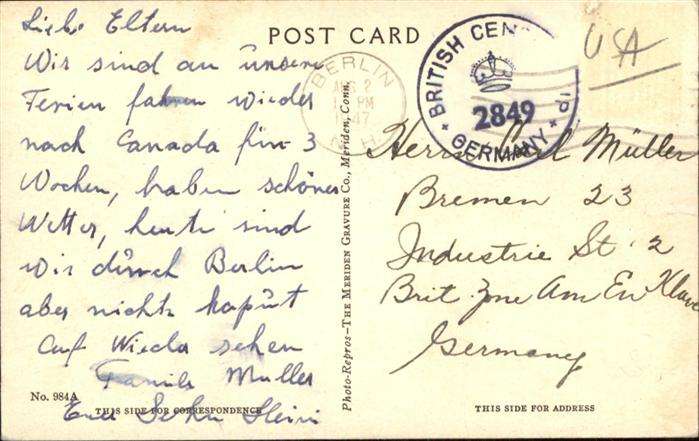 Liebe Eltern
Wir sind an unsere
Ferien fahren wieder
nach Canada für 3
Wochen, haben schönes
Wetter, heute sind
wir durch Berlin
aber nicht kaput
Auf Wieda sehen
Familie Muller
Euer Sohn Heini
No. 984A
THIS SIDE FOR CORRESPONDENCE
POST CARD
Photo-Repros—THE MERIDEN GRAVURE CO., Meriden, Conn.
BERLIN
AUG 2
PM
1947
N.H.
BRITISH CEN
2849
GERMANY
USA
Herrn Müller
Bremen 23
Industrie St. 2
Brit. Zone Am
Germany
THIS SIDE FOR ADDRESS